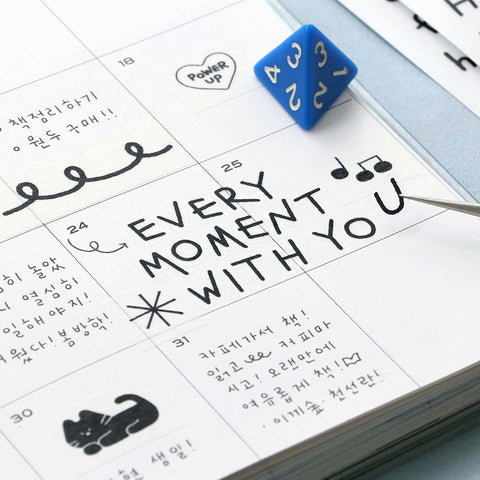 18
POWER
UP
4 3 2
3 1 2
책정리하기
원두 구매!!
25
24
EVERY
MOMENT
WITH YOU
놀았
열심히
일해야지!
봄방학!
31
카페가서 책!
읽고 커피마
시고! 오랜만에
여유롭게 책!
· 이끼숲, 천선란!
30
생일!